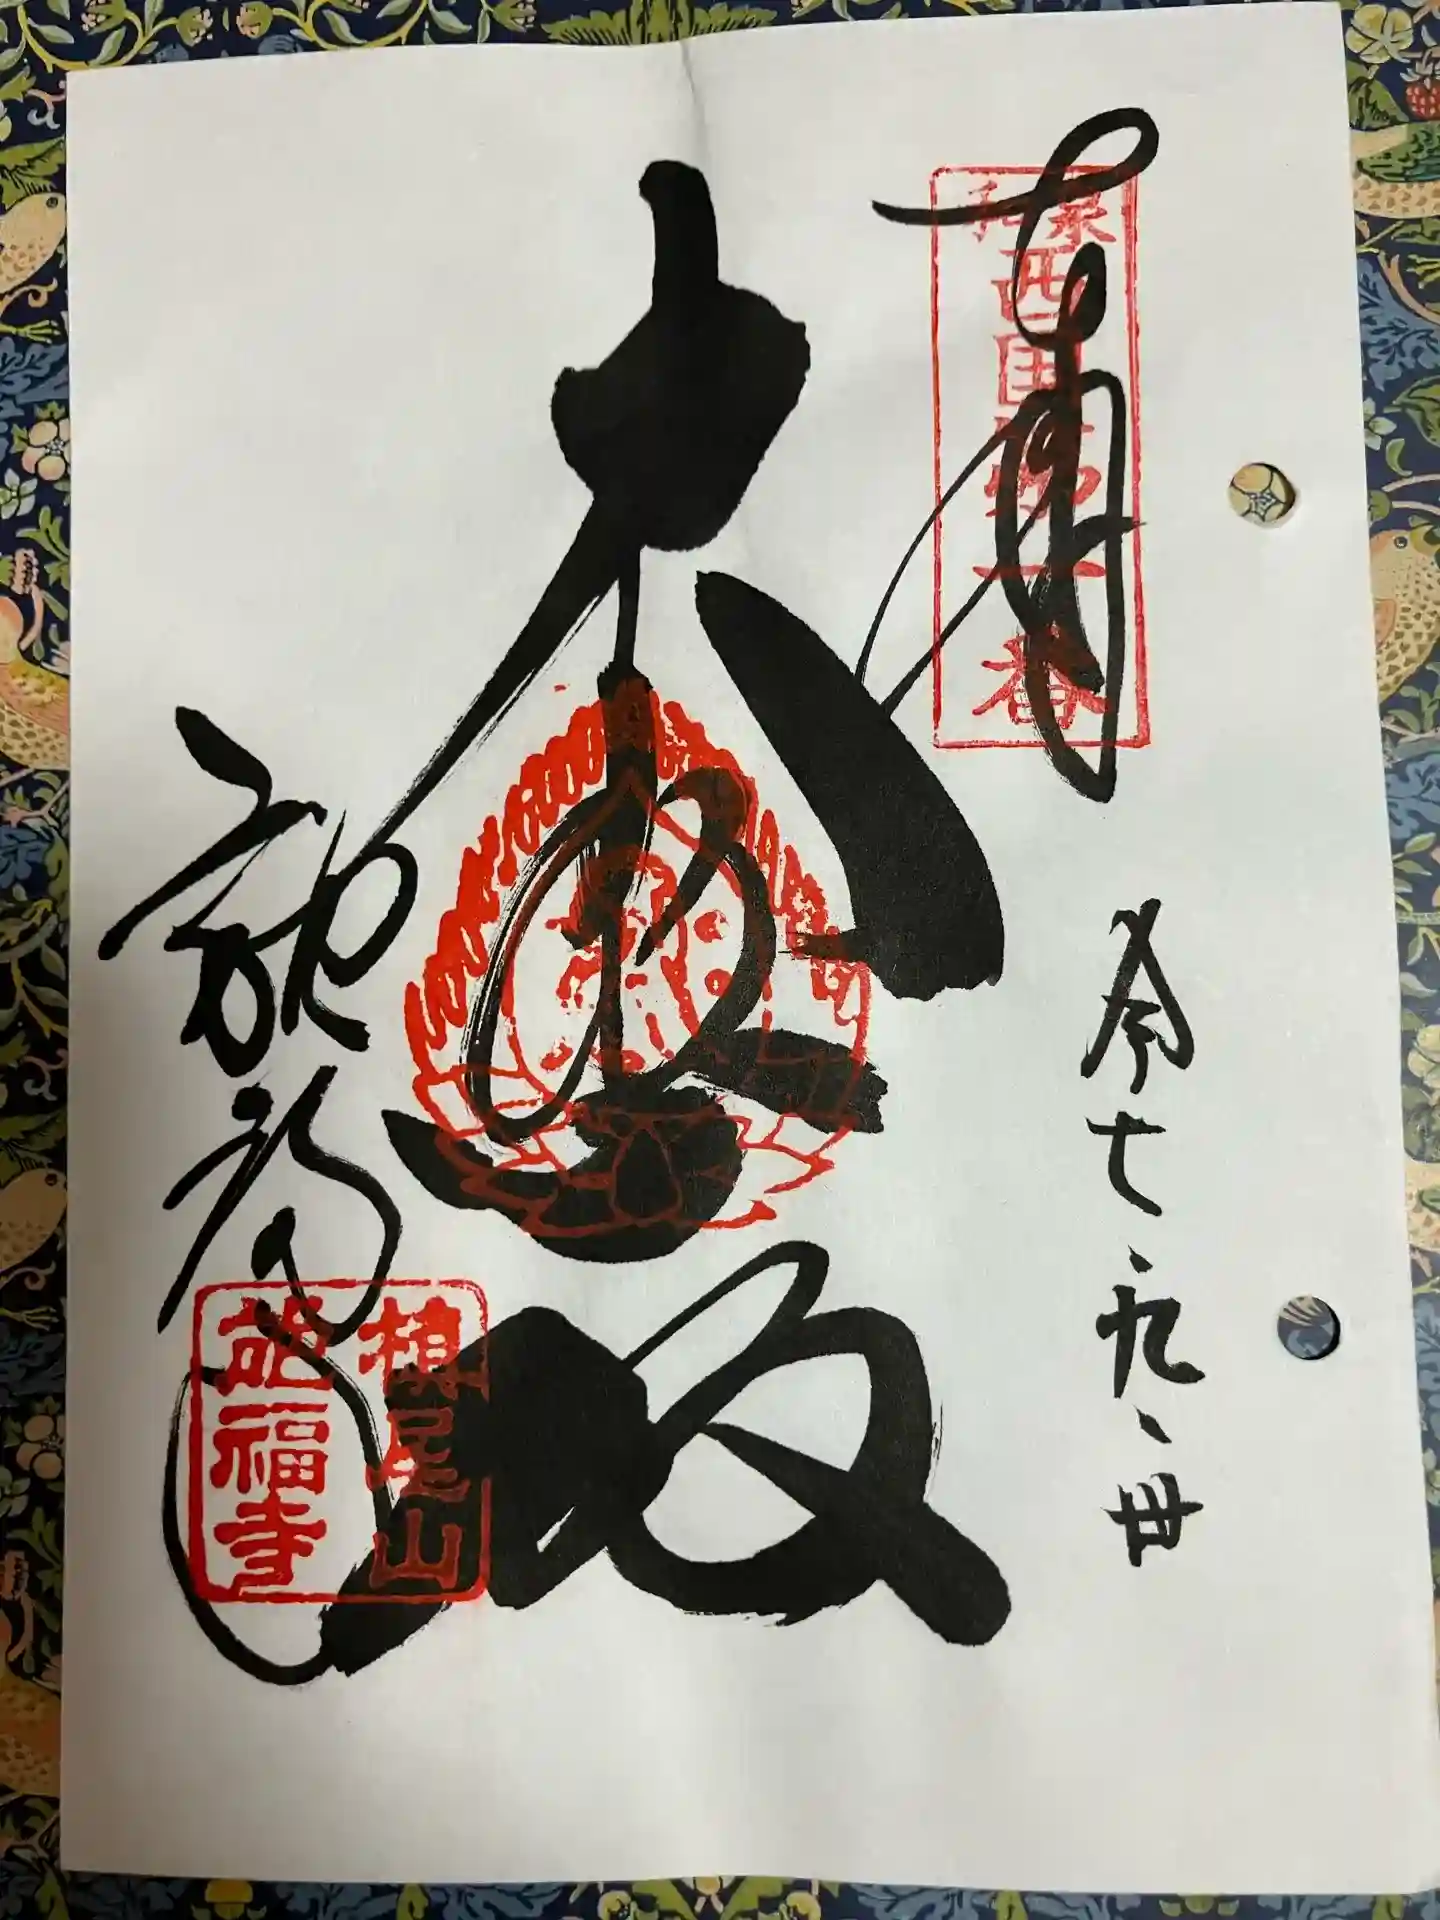 奉拝
西国第一番
令七、九、卅
大悲殿
施福寺
槙尾山
施福寺